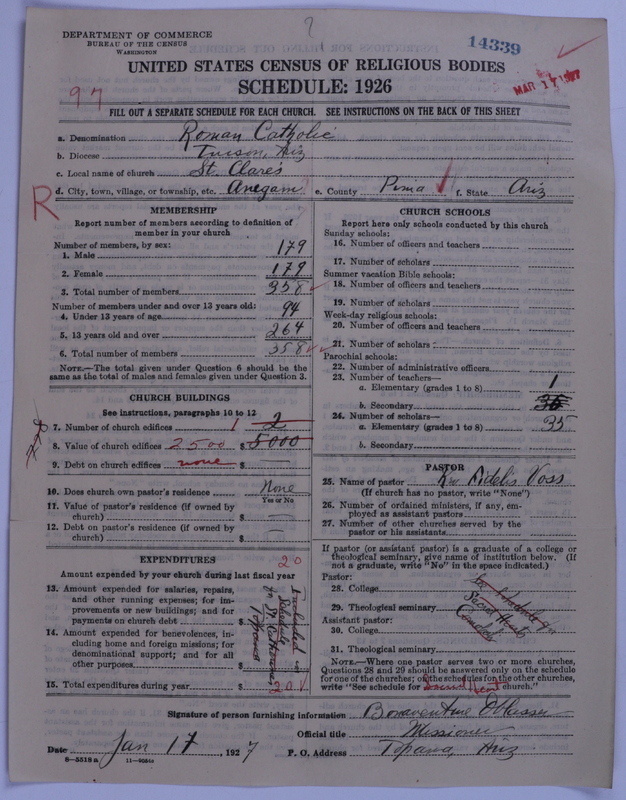 DEPARTMENT OF COMMERCE
BUREAU OF THE CENSUS
WASHINGTON
14339
MAR 17 1927
UNITED STATES CENSUS OF RELIGIOUS BODIES
SCHEDULE: 1926
97
FILL OUT A SEPARATE SCHEDULE FOR EACH CHURCH. SEE INSTRUCTIONS ON THE BACK OF THIS SHEET
a. Denomination Roman Catholic
b. Diocese Tucson, Ariz
c. Local name of church St. Clare's
d. City, town, village, or township, etc. Anegam e. County Pima f. State Ariz
R
MEMBERSHIP
Report number of members according to definition of member in your church
Number of members, by sex:
1. Male 179
2. Female 179
3. Total number of members 358
Number of members under and over 13 years old:
4. Under 13 years of age 94
5. 13 years old and over 264
6. Total number of members 358
NOTE.—The total given under Question 6 should be the same as the total of males and females given under Question 3.
CHURCH BUILDINGS
See instructions, paragraphs 10 to 12
7. Number of church edifices 1 2
8. Value of church edifices 2500 $ 5000
9. Debt on church edifices none $
10. Does church own pastor's residence None
Yes or No
11. Value of pastor's residence (if owned by church) $ —
12. Debt on pastor's residence (if owned by church) $ —
EXPENDITURES 20
Amount expended by your church during last fiscal year
13. Amount expended for salaries, repairs, and other running expenses; for improvements or new buildings; and for payments on church debt $
14. Amount expended for benevolences, including home and foreign missions; for denominational support; and for all other purposes $
Included in Schedule of St. Catherine Topawa
15. Total expenditures during year $ 20
CHURCH SCHOOLS
Report here only schools conducted by this church
Sunday schools:
16. Number of officers and teachers
17. Number of scholars
Summer vacation Bible schools:
18. Number of officers and teachers
19. Number of scholars
Week-day religious schools:
20. Number of officers and teachers
21. Number of scholars
Parochial schools:
22. Number of administrative officers
23. Number of teachers—
a. Elementary (grades 1 to 8) 1
b. Secondary 35
24. Number of scholars—
a. Elementary (grades 1 to 8) 35
b. Secondary
PASTOR
25. Name of pastor Rev Fidelis Voss
(If church has no pastor, write "None")
26. Number of ordained ministers, if any, employed as assistant pastors
27. Number of other churches served by the pastor or his assistants
If pastor (or assistant pastor) is a graduate of a college or theological seminary, give name of institution below. (If not a graduate, write "No" in the space indicated.)
Pastor:
28. College
29. Theological seminary
Assistant pastor:
30. College
31. Theological seminary
See Schedule for Sacred Heart
NOTE.—Where one pastor serves two or more churches, Questions 28 and 29 should be answered only on the schedule for one of the churches; on the schedules for the other churches, write "See schedule for Sacred Heart church."
Signature of person furnishing information Bonaventure Oblasser
Official title Missioner
Date Jan 17 , 1927 P. O. Address Topawa, Ariz
8—5318a 11—9034a